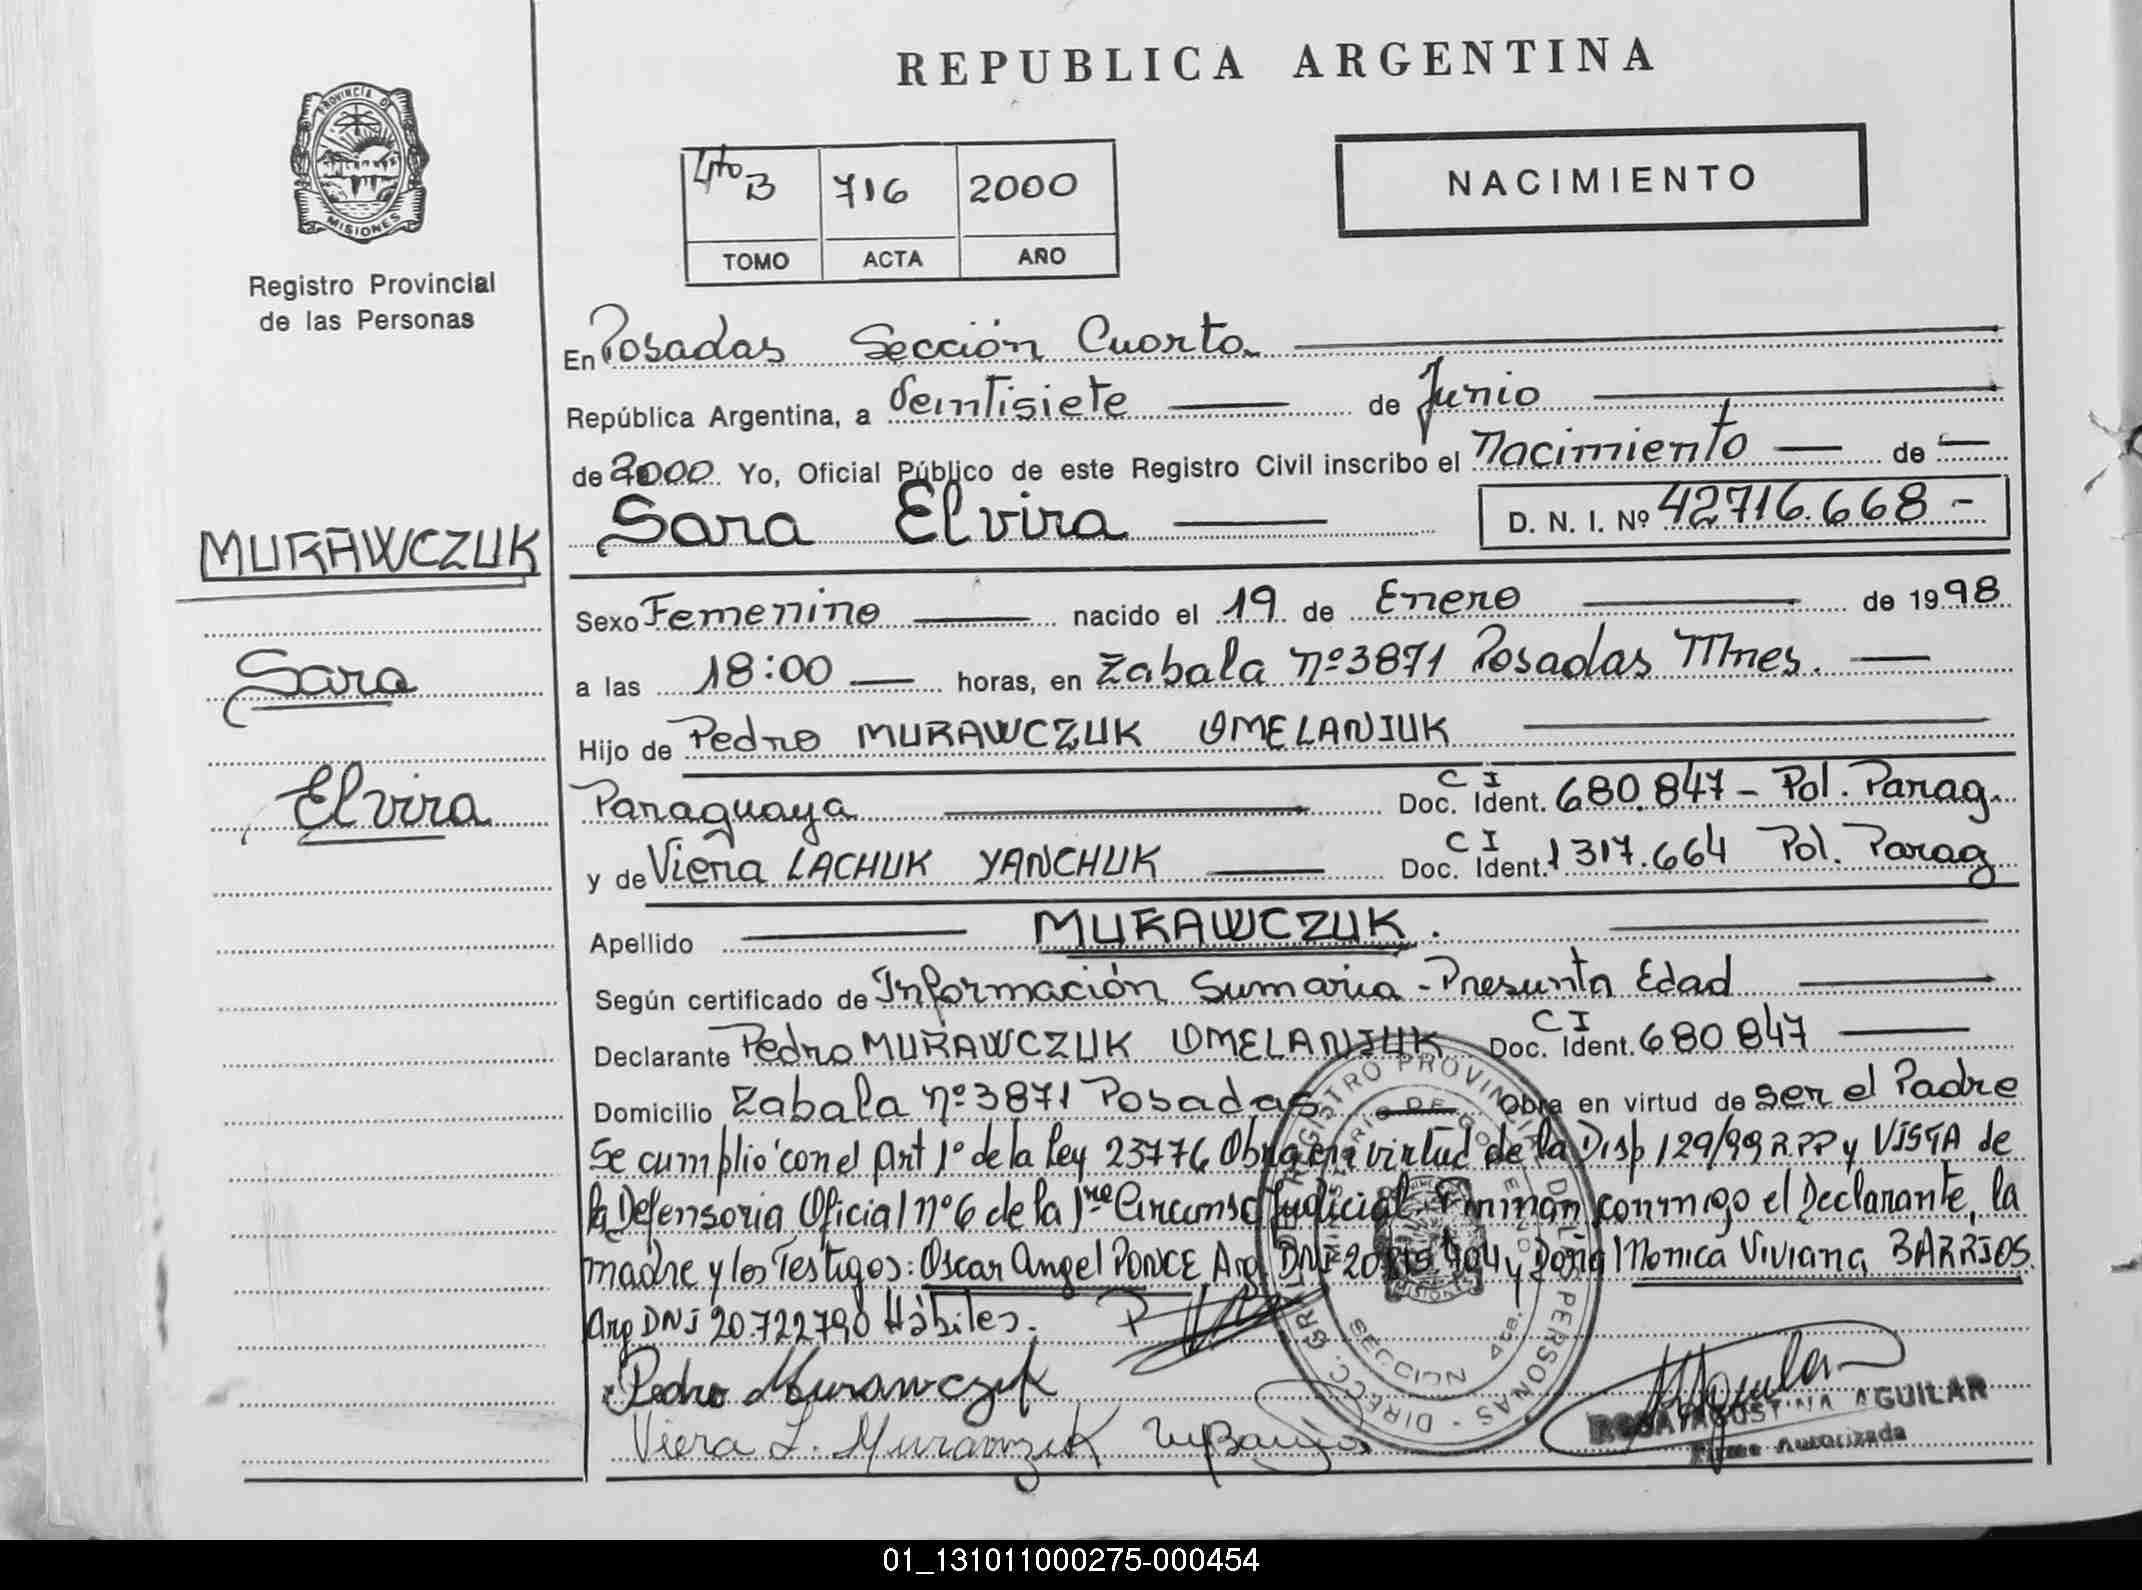 REPUBLICA ARGENTINA
PROVINCIA DE
MISIONES
Registro Provincial
de las Personas
4to B 716 2000
TOMO ACTA AÑO
NACIMIENTO
En Posadas Sección Cuarta
República Argentina, a Veintisiete de Junio
de 2000 Yo, Oficial Público de este Registro Civil inscribo el Nacimiento de
Sara Elvira D. N. I. Nº 42716.668 -
MURAWCZUK
Sara
Elvira
Sexo Femenino nacido el 19 de Enero de 1998
a las 18:00 horas, en Zabala nº 3871 Posadas Mnes.
Hijo de Pedro MURAWCZUK OMELANIUK
Paraguaya Doc. Ident. C I 680.847 - Pol. Parag.
y de Viera LACHUK YANCHUK Doc. Ident. C I 1317.664 Pol. Parag
Apellido MURAWCZUK.
Según certificado de Información Sumaria - Presunta Edad
Declarante Pedro MURAWCZUK OMELANIUK Doc. Ident. C I 680 847
Domicilio Zabala nº 3871 Posadas Obra en virtud de ser el Padre
Se cumplio con el Art 1º de la Ley 23776 Obra en virtud de la Disp 129/99 R.PP y VISTA de
la Defensoria Oficial nº 6 de la 1ra Circunsc Judicial. Firman conmigo el Declarante, la
madre y los Testigos: Oscar Angel PONCE Arg DNI 20 y Doña Monica Viviana BARRIOS
Arg DNI 20.722790 Hábiles.
Pedro Murawczuk
Viera L. Murawczuk
DIRECC. GRAL. REGISTRO PROVINCIAL DE LAS PERSONAS
MINISTERIO DE GOBIERNO
MISIONES
SECCION 4ta.
ROSA AGUSTINA AGUILAR
Firma Autorizada
01_131011000275-000454